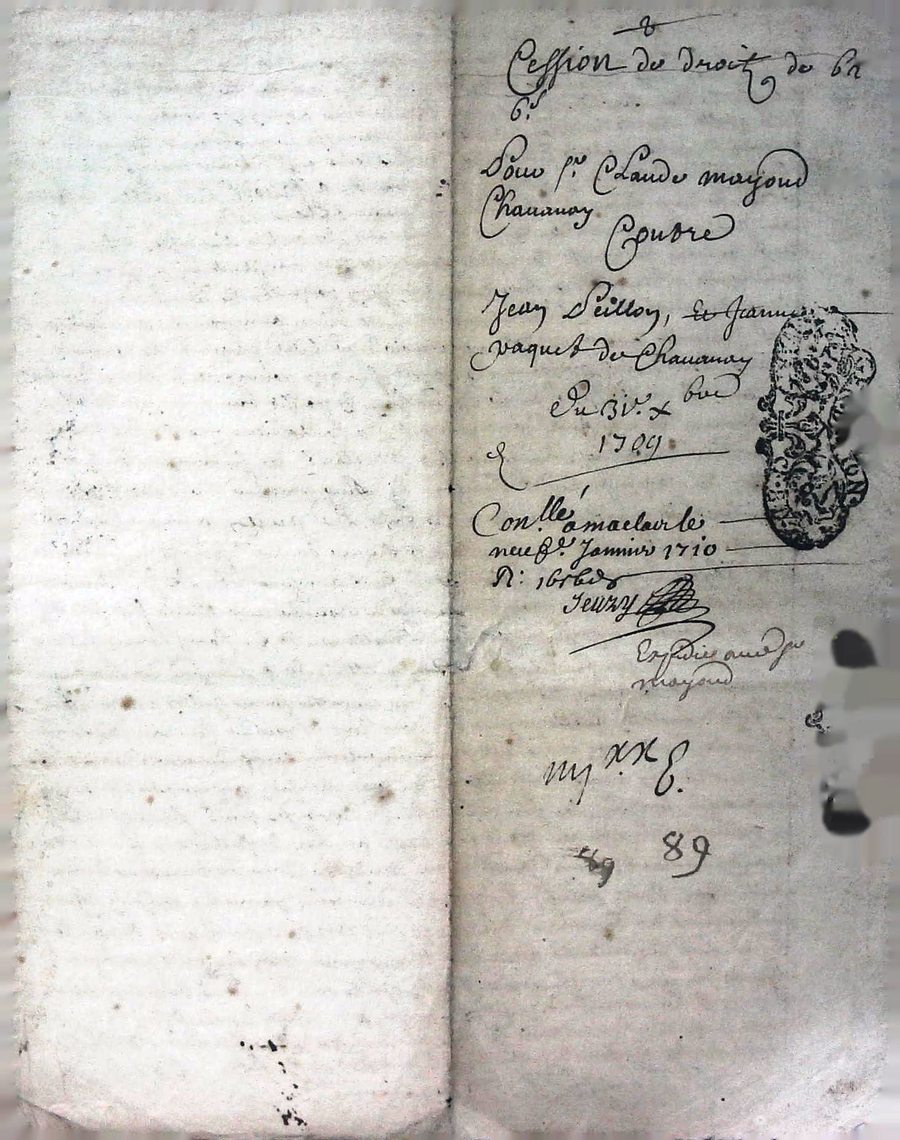 Cession de droit de 62
6s
Pour sr. Claude mayoud
Chauanay
Contre
Jean Peillon, Et Jeanne
paquet de Chauanay
Du 31e. xbre
1709
Conllé amaclas le
neufe. Januier 1710
R:
Jeury
Expediée aud sr
mayoud
89
89